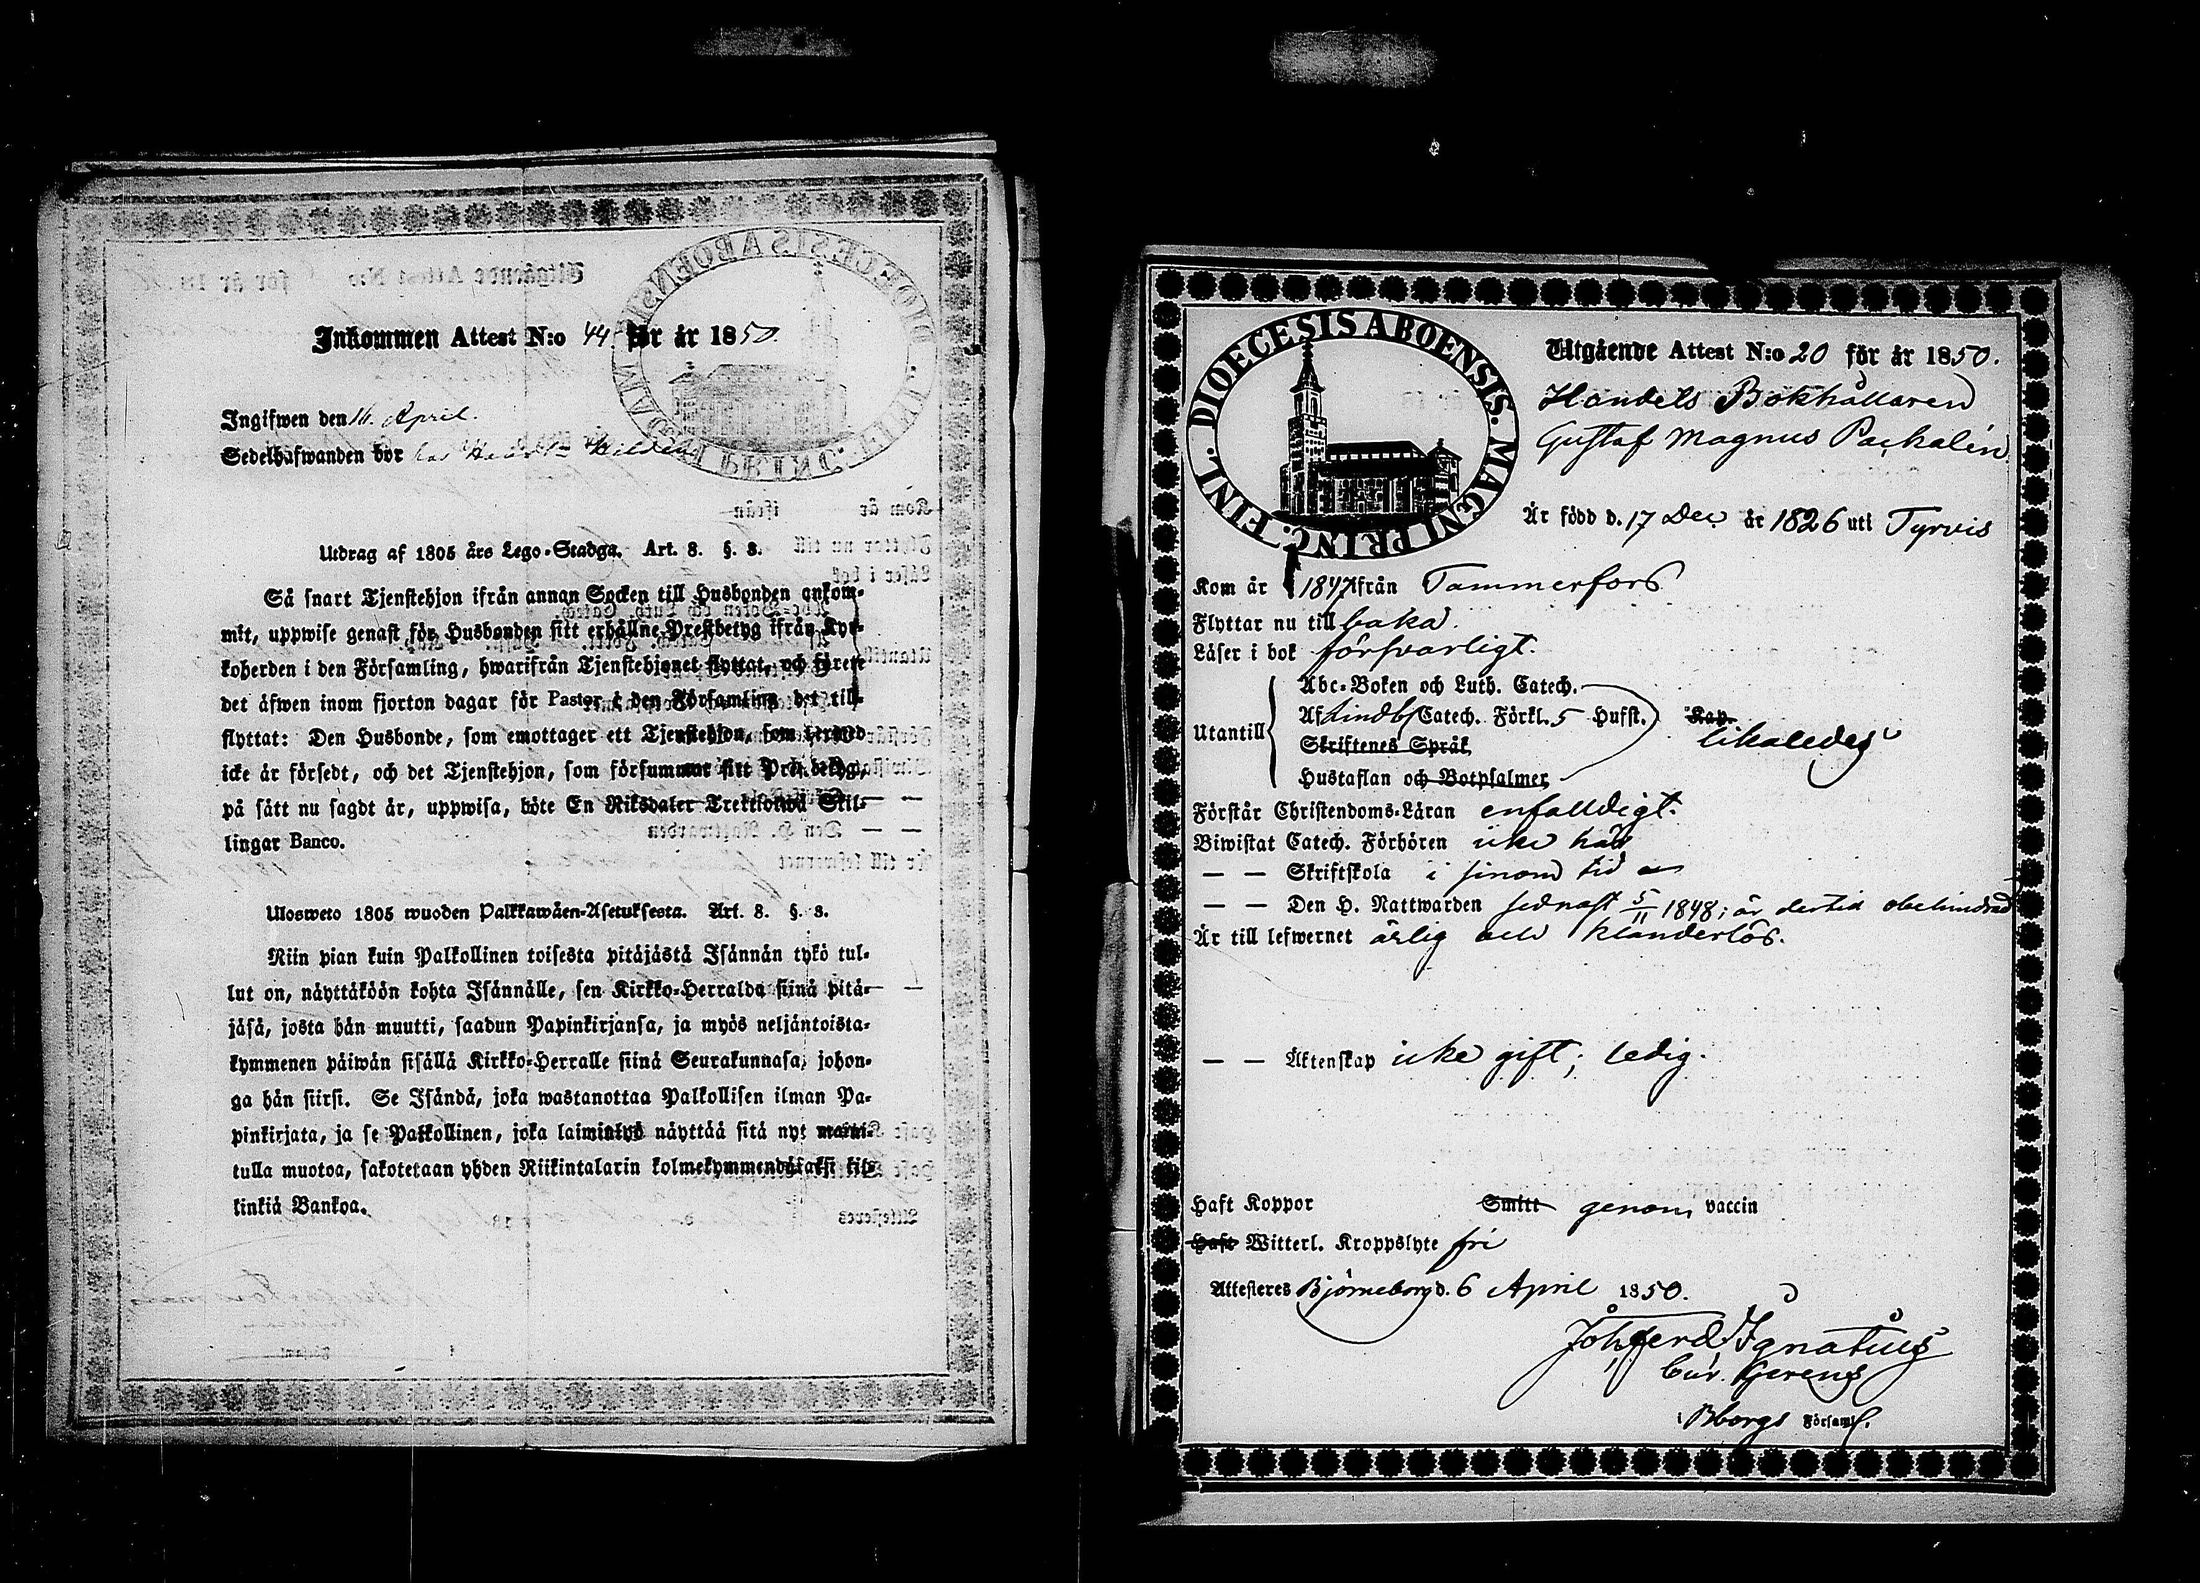 Inkommen Attest N:o 44 för år 1850.
Ingifwen den 16 April.
Sedelhafwanden bör hos
Utdrag af 1805 års Lego-Stadga. Art. 8. §. 8.
Så snart Tjenstehjon ifrån annan Socken till Husbonden ankom-
mit, uppwise genast för Husbonden sitt erhållne Prestbetyg ifrån Kyr-
koherden i den Församling, hwarifrån Tjenstehjonet flyttat, och förete
det äfwen inom fjorton dagar för Pastor i den Församling det till-
flyttat: Den Husbonde, som emottager ett Tjenstehjon, som dermed
icke är försedt, och det Tjenstehjon, som försummar sitt Prestbetyg,
på sätt nu sagdt är, uppwisa, böte En Riksdaler Trettiotwå Skil-
lingar Banco.
Ulosweto 1805 wuoden Palkkawäen-Asetuksesta. Art. 8. §. 8.
Niin pian kuin Palkollinen toisesta pitäjästä Isännän tykö tul-
lut on, näyttäköön kohta Isännälle, sen Kirkko-Herralda siinä pitä-
jäsä, josta hän muutti, saadun Papinkirjansa, ja myös neljäntoista-
kymmenen päiwän sisällä Kirkko-Herralle siinä Seurakunnasa, johon-
ga hän siirsi. Se Isändä, joka wastanottaa Palkollisen ilman Pa-
pinkirjata, ja se Palkollinen, joka laiminlyö näyttää sitä nyt maini-
tulla muotoa, sakotetaan yhden Riikintalarin kolmekymmendäkaksi kil-
linkiä Bankoa.
DIOECESIS ABOENSIS. MAGNI PRINC. FINL.
Utgående Attest N:o 20 för år 1850.
Handels Bokhållaren
Gustaf Magnus Pachalén
Är född d. 17 Dec. år 1826 uti Tyrvis
Kom år 1847 ifrån Tammerfors
Flyttar nu till baka.
Läser i bok försvarligt.
Abc-Boken och Luth. Catech.
Utantill Af Lindbl. Catech. Förkl. 5 Hufst. Kap. likaledes
Skriftenes Språk
Hustaflan och Botpsalmer
Förstår Christendoms-Läran enfalldigt.
Biwistat Catech. Förhören icke här
— — Skriftskola i sinom tid
— — Den H. Nattwarden sednast 5/11 1848; är dertid obehindrad
Är till lefwernet ärlig och klanderlös.
— — Äktenskap icke gift; ledig.
Haft Koppor Smitt genom vaccin
Haft Witterl. Kroppslyte fri
Attesteres Björneborg d. 6 April 1850.
Joh. Ferd. Ignatius
Cur. Gerens
i Bborgs Församl.